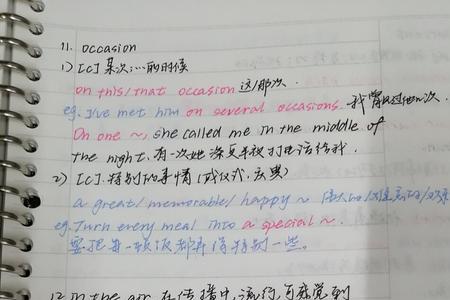 11. occasion
1) [C] 某次;…的时候
on this/that occasion 这/那次.
eg. I've met him on several occasions. 我曾见过他几次.
On one ~, she called me in the middle of
the night. 有一次她深更半夜打电话给我.
2) [C]. 特别的事情(或仪式, 庆典)
a great/memorable/happy ~
eg. Turn every meal into a special ~.
要把每一顿饭都弄得特别一些。
12. in the air 在传播中,流行,可感觉到